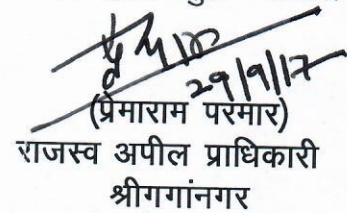 29/9/17
(प्रेमाराम परमार)
राजस्व अपील प्राधिकारी
श्रीगगांनगर